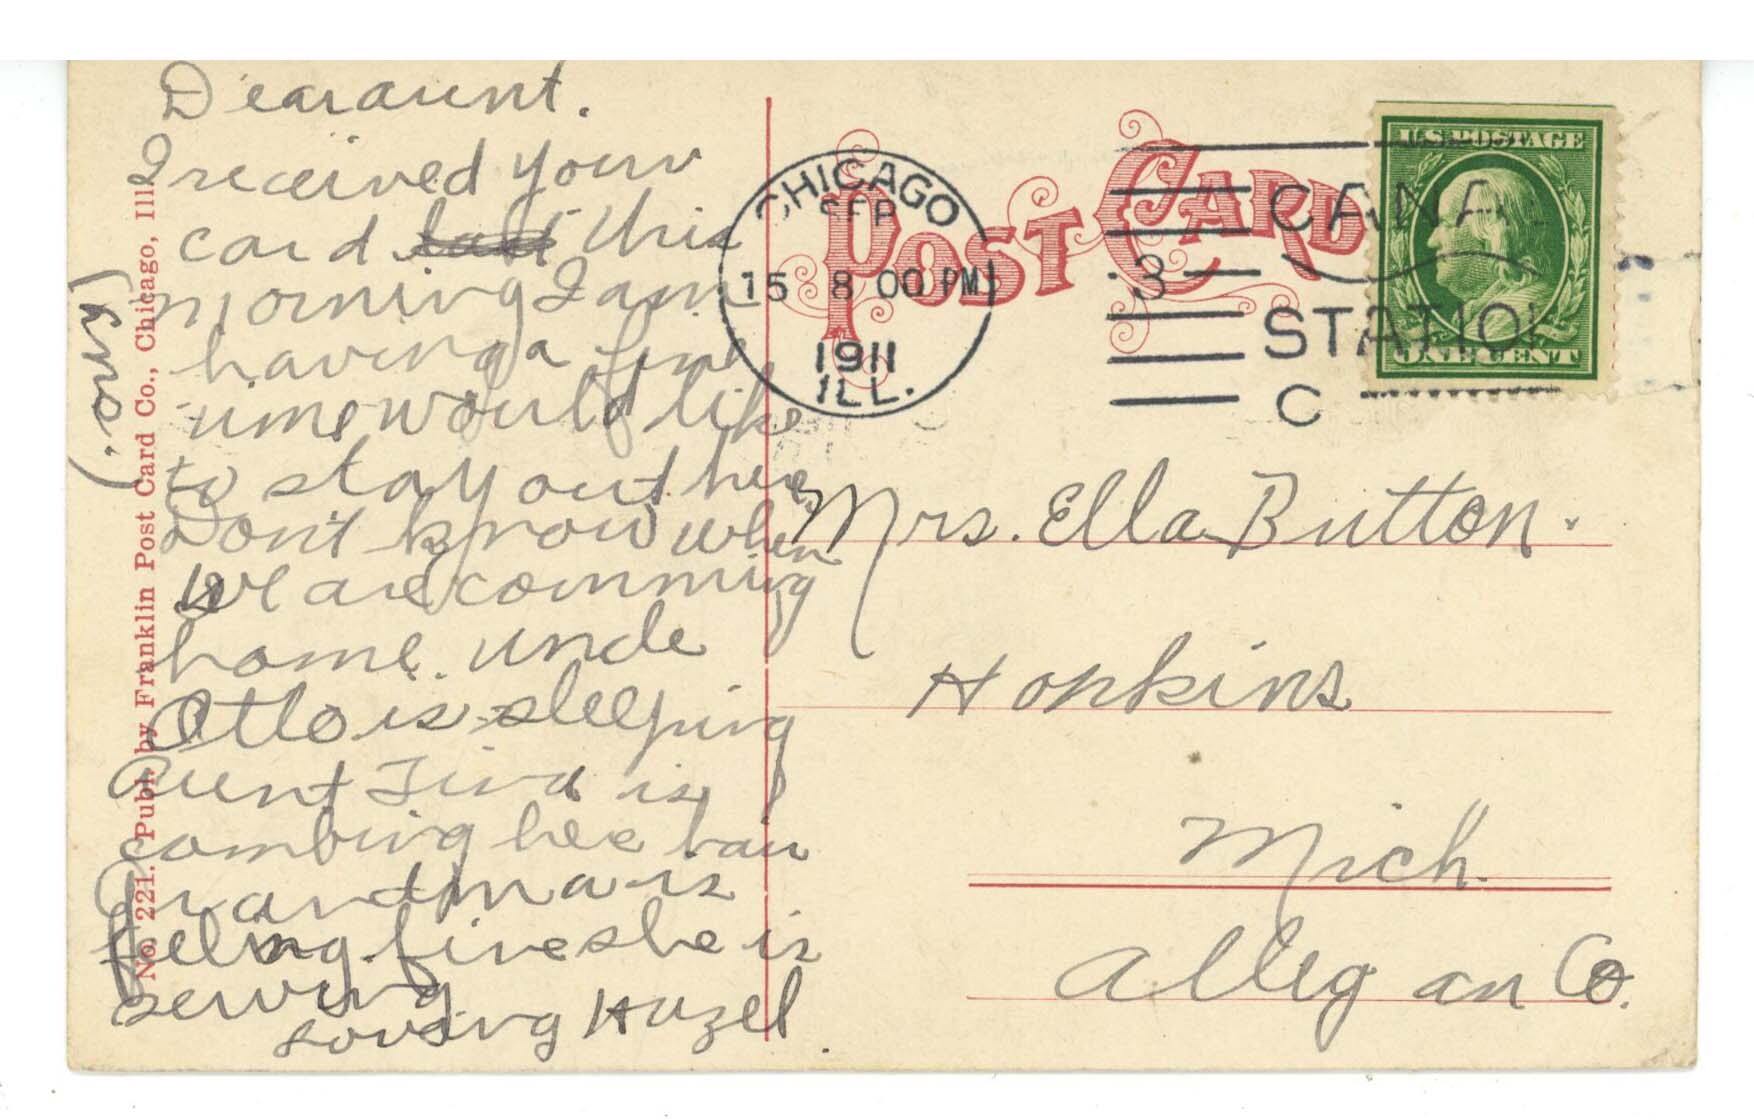 Dear aunt.
I received your
card this
morning I am
having a fine
time would like
to stay out here
Dont know when
we are comming
home. uncle
Otto is sleeping
aunt is
combing her hair
Grandma is
feeling fine she is
serving
Loving Hazel
(ans.)
No. 221. Publ. by Franklin Post Card Co., Chicago, Ill.
POST CARD
CHICAGO
SEP
15 8 00 PM
1911
ILL.
CANAL
3
STATION
C
U.S. POSTAGE
ONE CENT
Mrs. Ella Button.
Hopkins
Mich.
Allegan Co.